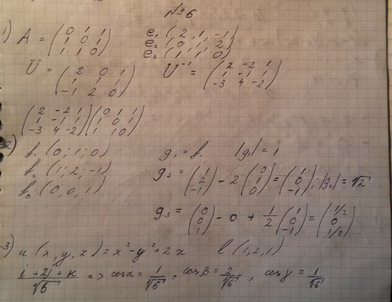 №6
1) A = (0 1 1; 1 0 1; 1 1 0) e₁ (2, 1, -1)
e₂ (0, 1, 2)
e₃ (1, 1, 0)
U = (2 0 1; 1 1 1; -1 2 0) U⁻¹ = (2 -2 1; 1 -1 1; -3 4 -2)
(2 -2 1; 1 -1 1; -3 4 -2)(0 1 1; 1 0 1; 1 1 0)
f₁ (0; 1; 0) g₁ = f₁ |g₁| = 1
f₂ (1; 2; -1) g₂ = (1; 2; -1) - 2(0; 1; 0) = (1; 0; -1); |g₂| = √2
f₃ (0, 0, 1) g₃ = (0; 0; 1) - 0 + 1/2 (1; 0; -1) = (1/2; 0; 1/2)
3) u(x, y, z) = x² - y² + 2z l(1, 2, 1)
(i + 2j + k)/√6 => cosα = 1/√6, cosβ = 2/√6, cosγ = 1/√6